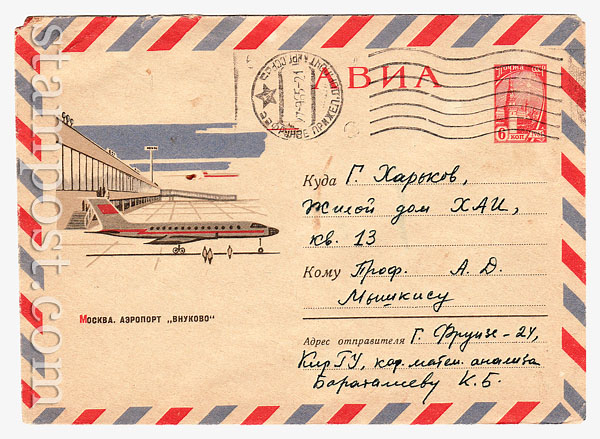 АВИА
ПОЧТА СССР
6 КОП
Куда Г. Харьков,
Жилой дом ХАИ,
кв. 13
Кому Проф. А. Д.
Мышкису
МОСКВА. АЭРОПОРТ „ВНУКОВО“
Адрес отправителя г. Фрунзе-24,
КирГУ, каф. матем. анализа
Бараталиеву К. Б.
stampost.com